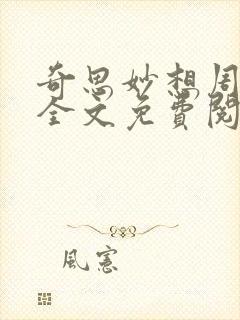 奇思妙想周
全文免費閱
風憲